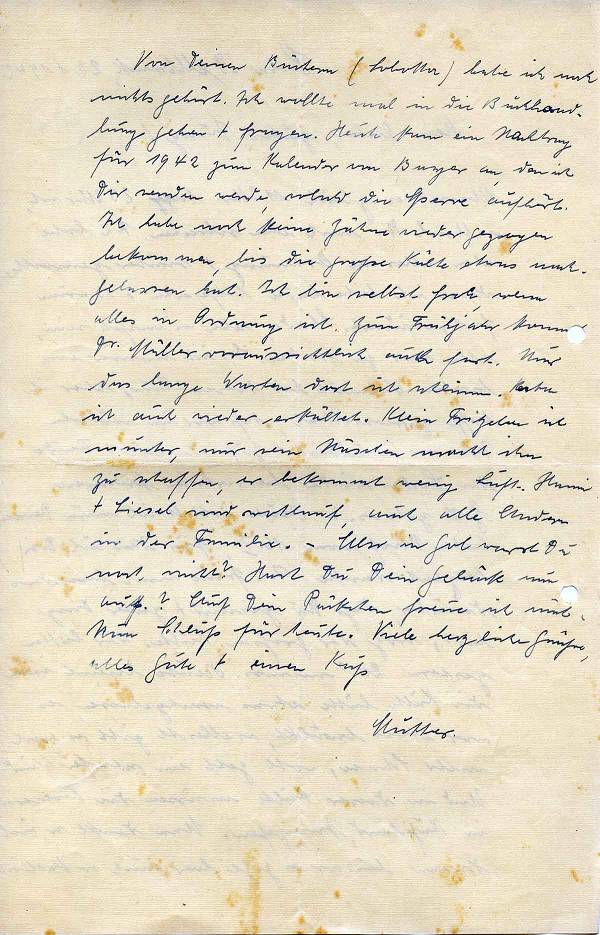 Von Deinen Büchern (Sobotta) habe ich noch
nichts gehört. Ich wollte mal in die Buchhand-
lung gehen + fragen. Heute kam ein Nachtrag
für 1942 zum Kalender von Bayer an, den ich
Dir senden werde, sobald die Sperre aufhört.
Ich habe noch keine Zähne wieder gezogen
bekommen, bis die große Kälte etwas nach-
gelassen hat. Ich bin selbst froh, wenn
alles in Ordnung ist. Zum Frühjahr kommt
Dr. Müller voraussichtlich auch fort. Nur
das lange Warten dort ist schlimm.
ist auch wieder erkältet. Klein Fritzchen ist
munter, nur sein Näschen macht ihm
zu schaffen, er bekommt wenig Luft. Hanni
+ Liesel sind wohlauf, auch alle Andern
in der Familie. – Also in warst Du
noch nicht? Hast Du Dein Gebäck nun
auf.? Auf Dein Päckchen freue ich mich.
Nun Schluß für heute. Viele herzliche Grüße,
alles Gute + einen Kuß
Mutter.